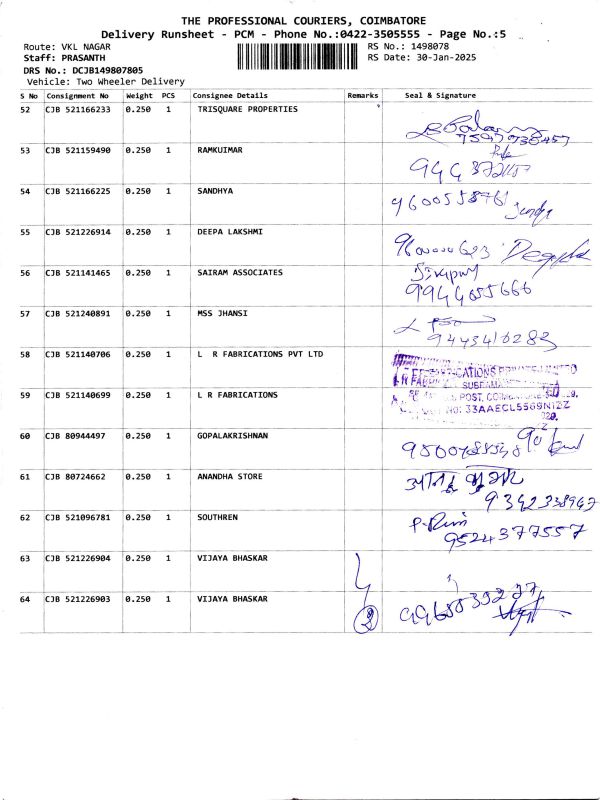 THE PROFESSIONAL COURIERS, COIMBATORE
Delivery Runsheet - PCM - Phone No.:0422-3505555 - Page No.:5
Route: VKL NAGAR RS No.: 1498078
Staff: PRASANTH RS Date: 30-Jan-2025
DRS No.: DCJB149807805
Vehicle: Two Wheeler Delivery
S No Consignment No Weight PCS Consignee Details Remarks Seal & Signature
52 CJB 521166233 0.250 1 TRISQUARE PROPERTIES
53 CJB 521159490 0.250 1 RAMKUIMAR
54 CJB 521166225 0.250 1 SANDHYA
55 CJB 521226914 0.250 1 DEEPA LAKSHMI
56 CJB 521141465 0.250 1 SAIRAM ASSOCIATES
9944055666
57 CJB 521240891 0.250 1 MSS JHANSI
9443410283
58 CJB 521140706 0.250 1 L R FABRICATIONS PVT LTD
59 CJB 521140699 0.250 1 L R FABRICATIONS
33AAECL5569N1ZZ
60 CJB 80944497 0.250 1 GOPALAKRISHNAN
61 CJB 80724662 0.250 1 ANANDHA STORE
62 CJB 521096781 0.250 1 SOUTHREN
9524377557
63 CJB 521226904 0.250 1 VIJAYA BHASKAR
64 CJB 521226903 0.250 1 VIJAYA BHASKAR
2